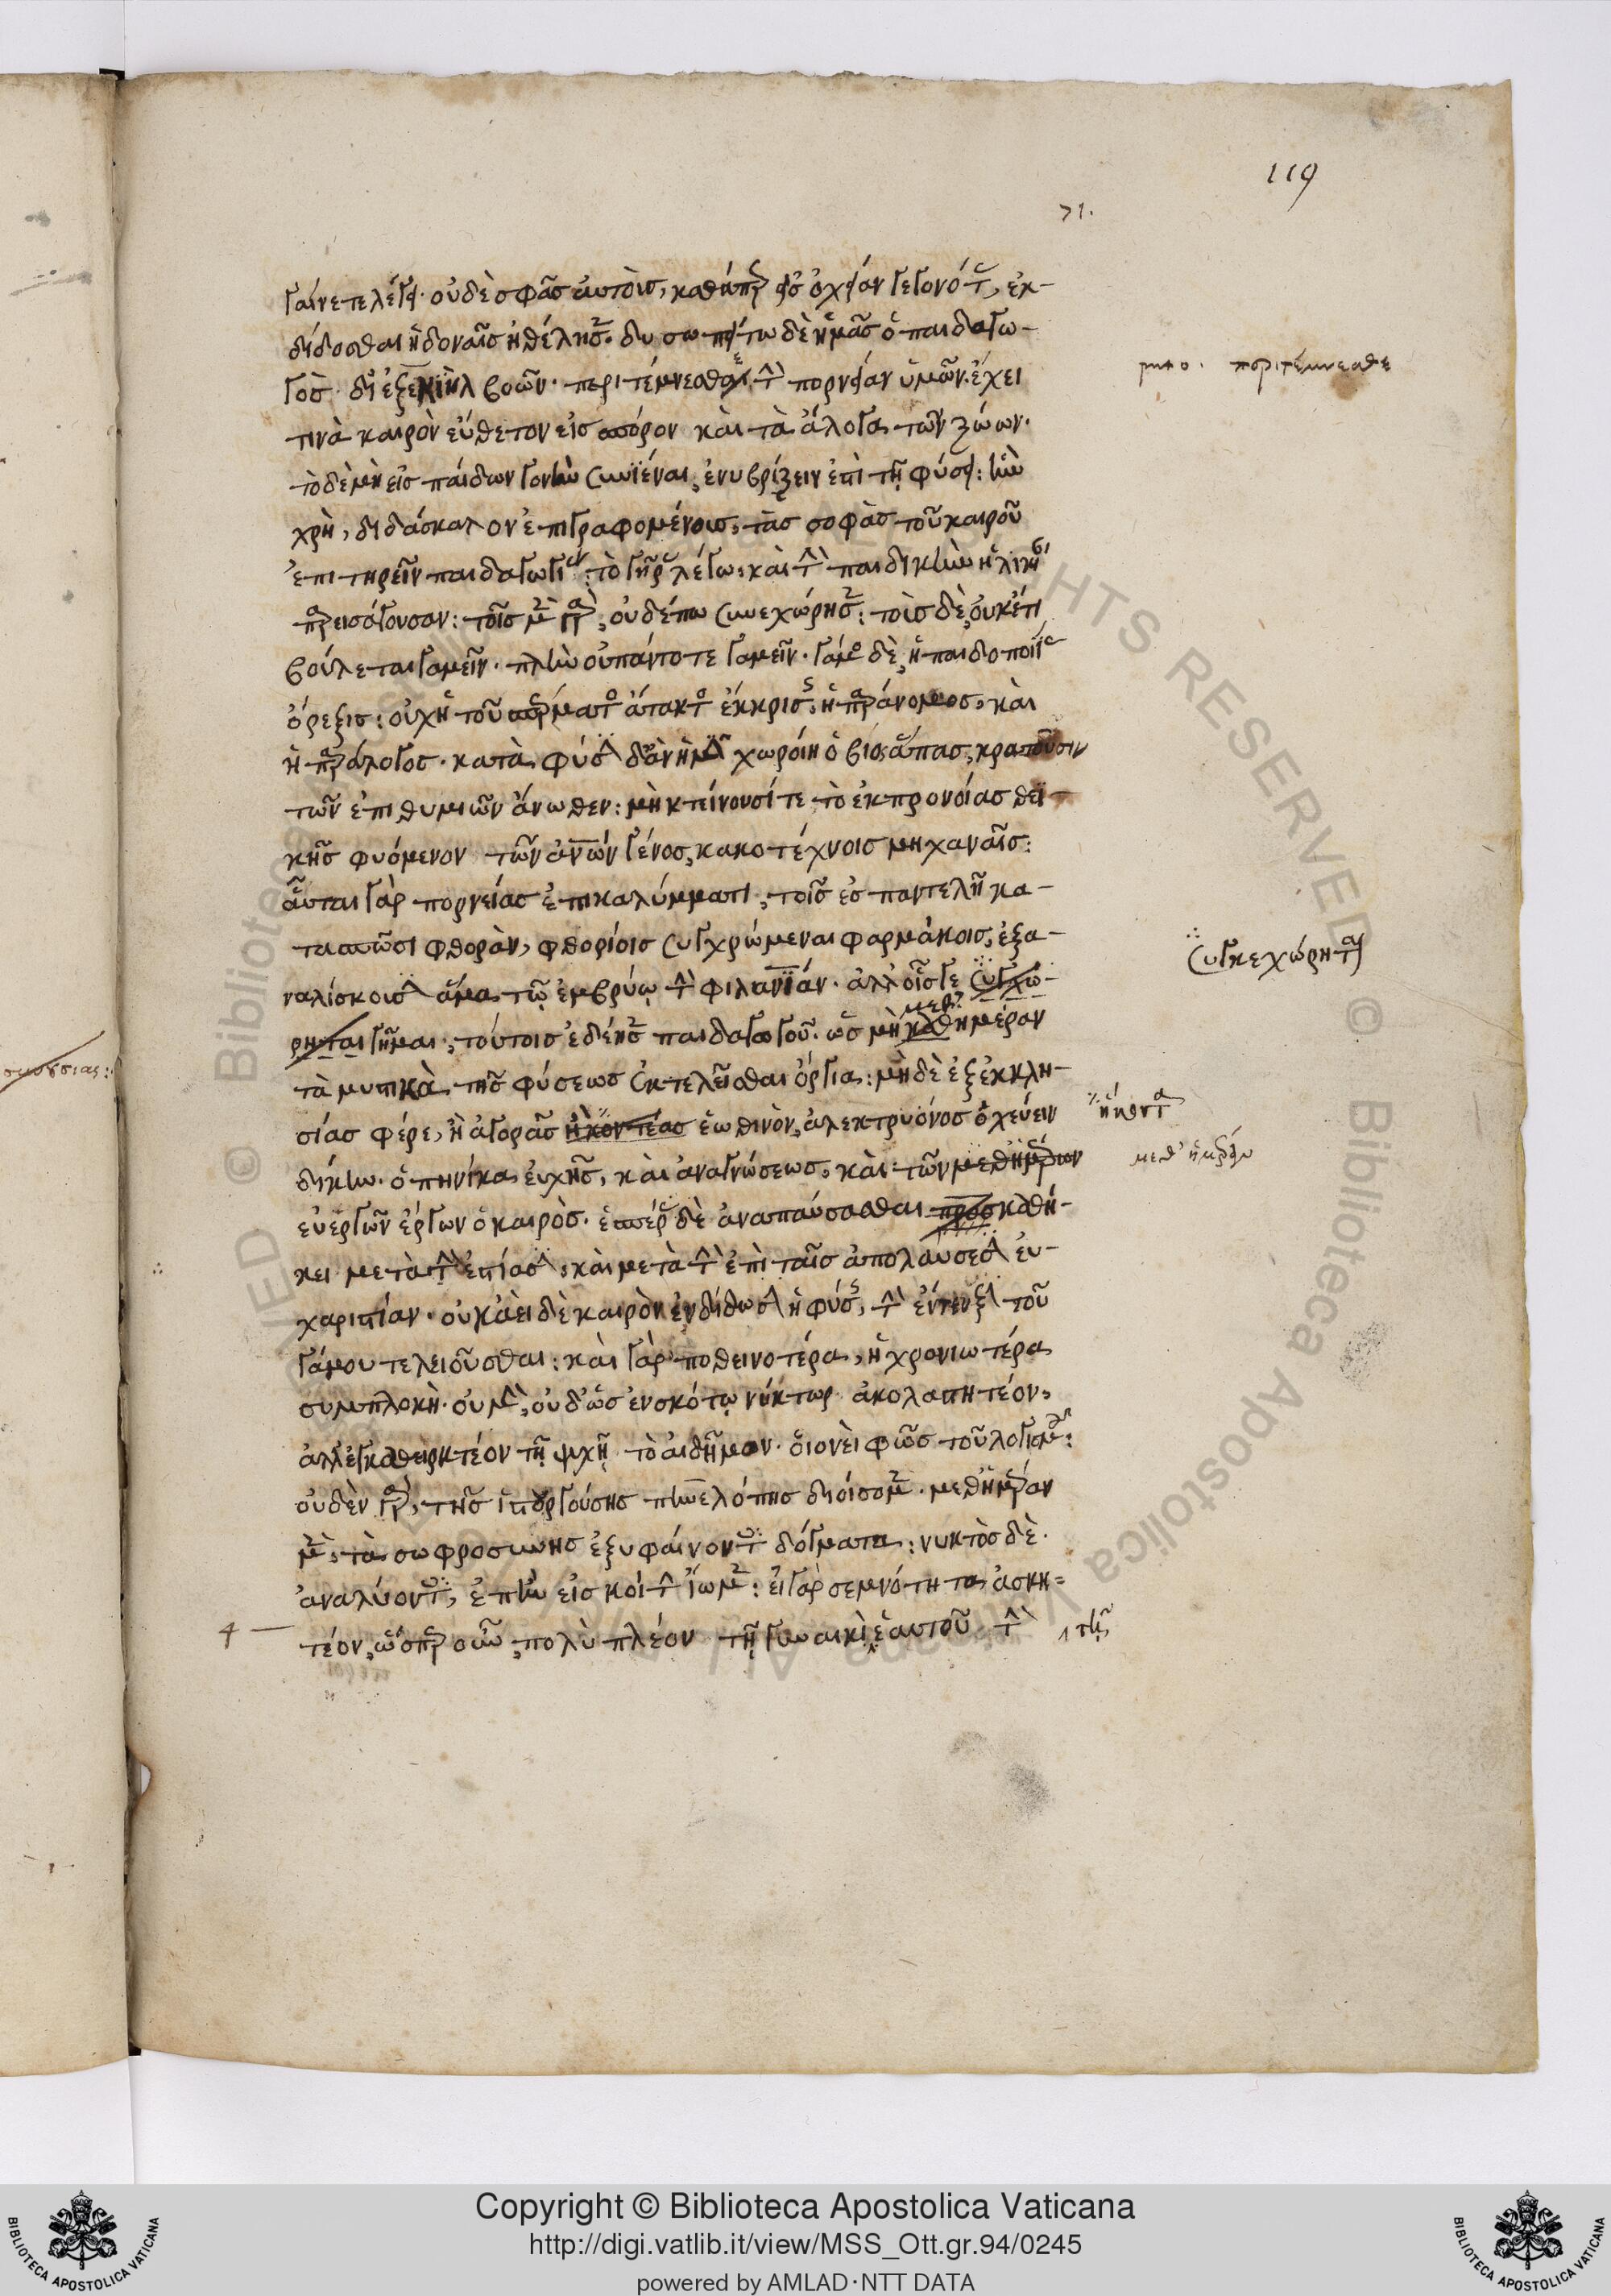 119
71.
γαίνετε λέγει· οὐδὲ σφᾶς αὐτοὺς, καθάπερ εἰς ὀχείαν γεγονότας, ἐκ-
δίδοσθαι ἡδοναῖς ἠθέλησεν. δυσωπείτω δὲ ἡμᾶς ὁ παιδαγω-
γὸς δι' ἐξεκιὴλ βοῶν· περιτέμνεσθε τὴν πορνείαν ὑμῶν. ἔχει
τινὰ καιρὸν εὔθετον εἰς σπόρον καὶ τὰ ἄλογα τῶν ζώων·
τὸ δὲ μὴ εἰς παίδων γονὴν συνϊέναι, ἐνυβρίζειν ἐστὶ τῇ φύσει: ἣν
χρὴ, διδάσκαλον ἐπιγραφομένους, τὰς σοφὰς τοῦ καιροῦ
ἐπιτηρεῖν παιδαγωγίας: τὸ γῆρας λέγω, καὶ τὴν παιδικὴν ἡλικίαν
παρεισάγουσαν: τοῖς μὲν γὰρ, οὐδέπω συνεχώρησεν: τοὺς δὲ, οὐκέτι
βούλεται γαμεῖν· πλὴν οὐ πάντοτε γαμεῖν· γάμος δὲ, ἡ παιδοποιΐας
ὄρεξις: οὐχ ἡ τοῦ σπέρματος ἄτακτος ἔκκρισις, ἡ παράνομος, καὶ
ἡ παράλογος· κατὰ φύσιν δ' ἂν ἡμῖν χωροίη ὁ βίος ἅπας, κρατοῦσιν
τῶν ἐπιθυμιῶν ἄνωθεν: μὴ κτείνουσί τε τὸ ἐκ προνοίας θεϊ-
κῆς φυόμενον τῶν ἀνῶν γένος, κακοτέχνοις μηχαναῖς:
αὗται γὰρ πορνείας ἐπικαλύμματι, τοῖς ἐς παντελῆ κα-
τασπῶσι φθορὰν, φθορίοις συγχρώμεναι φαρμάκοις, ἐξα-
ναλίσκουσιν ἅμα τῷ ἐμβρύῳ τὴν φιλανΐαν. ἀλλ' οἷς γε συγχω-
ρηται γῆμαι, τούτοις ἐδέησεν παιδαγωγοῦ. ὡς μὴ καθημέραν
μεθ'
τὰ μυστικὰ τῆς φύσεως ἐκτελεῖσθαι ὄργια: μηδὲ ἐξ ἐκκλη-
σίας φέρε, ἢ ἀγορᾶς ἡκοντέας ἑωθινὸν, ἀλεκτρυόνος ὀχεύειν
δίκην. ὁπηνίκα εὐχῆς, καὶ ἀναγνώσεως, καὶ τῶν μεθημέριον
εὐεργῶν ἔργων ὁ καιρὸς. ἑσπέρας δὲ ἀναπαύσασθαι προσκαθή-
κει μετὰ τὴν ἑστίασιν, καὶ μετὰ τὴν ἐπὶ ταῖς ἀπολαύσεσιν εὐ-
χαριστίαν· οὐκ ἀεὶ δὲ καιρὸν ἐνδίδωσιν ἡ φύσις, τὴν ἔντευξιν τοῦ
γάμου τελειοῦσθαι: καὶ γὰρ ποθεινοτέρα, ἡ χρονιωτέρα
συμπλοκὴ. οὐ μὴν, οὐδ' ὡς ἐν σκότῳ νύκτωρ ἀκολαστητέον,
ἀλλ' ἐγκαθειρκτέον τῇ ψυχῇ τὸ αἰδῆμον· οἱονεὶ φῶς τοῦ λογισμοῦ:
οὐδὲν γὰρ, τῆς ἱστουργούσης πηνελόπης διοίσομεν· μεθημέραν
μὲν, τὰ σωφροσύνης ἐξυφαίνοντες δόγματα: νυκτὸς δὲ
ἀναλύοντες, ἐπὴν εἰς κοίτην ἴωμεν: εἰ γὰρ σεμνότητα ἀσκη=
τέον, ὥσπερ οὖν, πολὺ πλέον τῇ γυναικὶ ἑαυτοῦ τὴν
περιτέμνεσθε
συγκεχώρηται
ἥκοντα
μεθ' ἡμέραν
τῇ
4 —
συνουσίας:
Copyright © Biblioteca Apostolica Vaticana
http://digi.vatlib.it/view/MSS_Ott.gr.94/0245
powered by AMLAD·NTT DATA
BIBLIOTECA APOSTOLICA VATICANA
BIBLIOTECA APOSTOLICA VATICANA